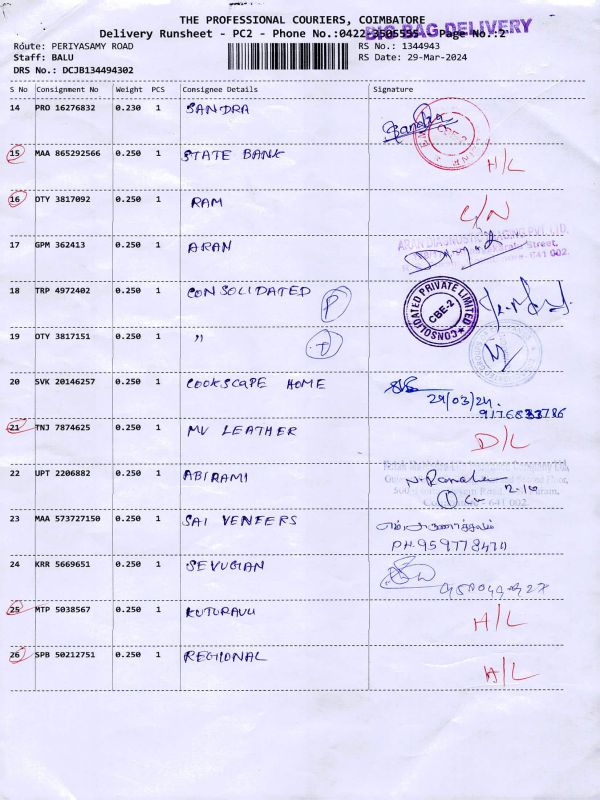 THE PROFESSIONAL COURIERS, COIMBATORE
Delivery Runsheet - PC2 - Phone No.:0422-3505555 Page No.:2
BIG BAG DELIVERY
Route: PERIYASAMY ROAD RS No.: 1344943
Staff: BALU RS Date: 29-Mar-2024
DRS No.: DCJB134494302
S No Consignment No Weight PCS Consignee Details Signature
14 PRO 16276832 0.230 1 SANDRA Sandra
15 MAA 865292566 0.250 1 STATE BANK H/L
16 OTY 3817092 0.250 1 RAM
17 GPM 362413 0.250 1 ARAN
18 TRP 4972402 0.250 1 CONSOLIDATED P CONSOLIDATED PRIVATE LIMITED CBE-2
19 OTY 3817151 0.250 1 " T
20 SVK 20146257 0.250 1 COOKSCAPE HOME 29/03/24.
21 TNJ 7874625 0.250 1 MV LEATHER D/L
22 UPT 2206882 0.250 1 ABIRAMI
23 MAA 573727150 0.250 1 SAI VENEERS
24 KRR 5669651 0.250 1 SEVUGAN
25 MTP 5038567 0.250 1 KUTURAVU H/L
26 SPB 50212751 0.250 1 REGIONAL H/L